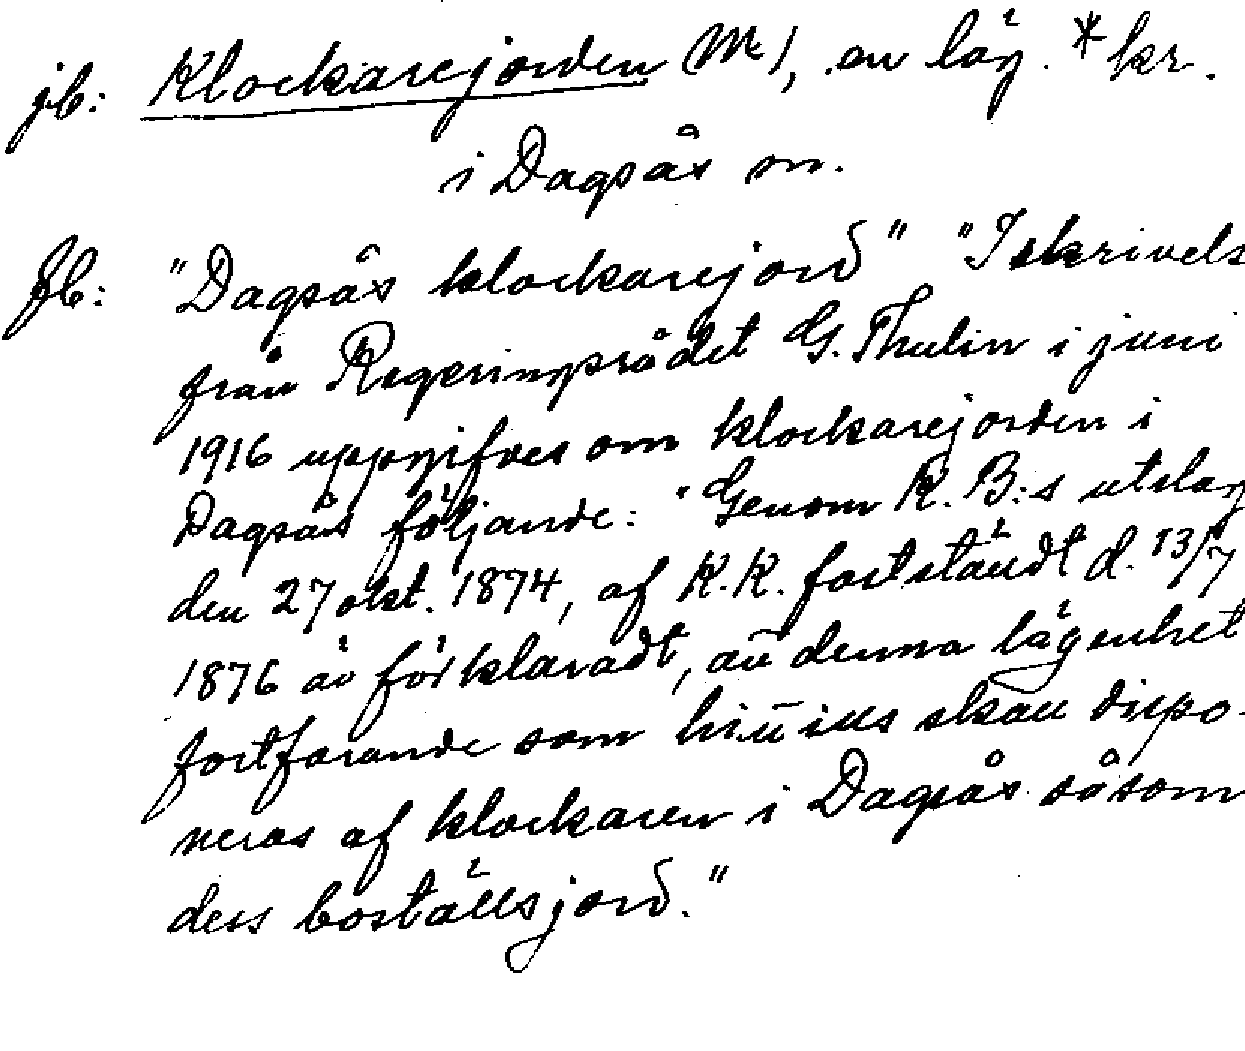 jb: Klockarejorden M 1, en läg. * kr.
i Dagsås sn.
fb: "Dagsås klockarejord" "I skrivels
från Regeringsrådet G. Thulin i juni
1916 uppgifves om klockarejorden i
Dagsås följande: "Genom K. B:s utslag
den 27 okt. 1874, af K.K. fastställdt d. 13/7
1876 är förklaradt, att denna lägenhet
fortfarande som hittills skall dispo-
neras af klockaren i Dagsås såsom
dess boställsjord."